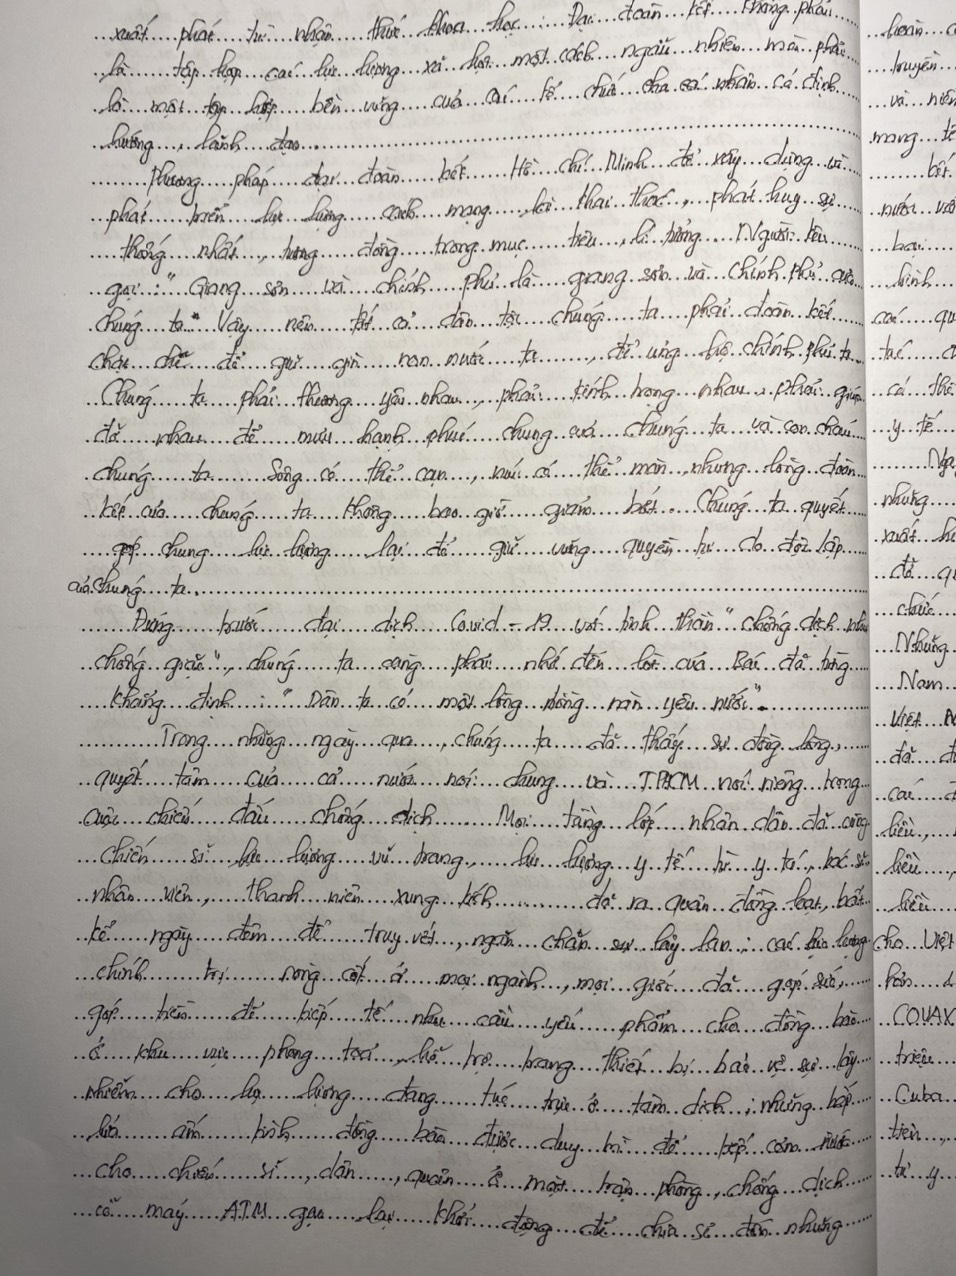 xuất phát từ nhận thức khoa học : Đại đoàn kết không phải
là tập hợp các lực lượng xã hội một cách ngẫu nhiên mà phải
là một tập hợp bền vững của các tổ chức cá nhân có định
hướng, lãnh đạo.
Phương pháp đại đoàn kết Hồ Chí Minh để xây dựng và
phát triển lực lượng cách mạng, khai thác, phát huy sự
thống nhất, tương đồng trong mục tiêu, lí tưởng. Người kêu
gọi : " Giang sơn và chính phủ là giang sơn và chính phủ của
chúng ta" Vậy nên tất cả dân tộc chúng ta phải đoàn kết
chặt chẽ để giữ gìn non nước ta, để ủng hộ chính phủ ta
Chúng ta phải thương yêu nhau, phải kính trọng nhau, phải giúp
đỡ nhau để mưu hạnh phúc chung của chúng ta và con cháu
chúng ta. Sông có thể cạn, núi có thể mòn, nhưng lòng đoàn
kết của chúng ta không bao giờ giảm bớt. Chúng ta quyết
góp chung lực lượng lại để giữ vững quyền tự do độc lập
của chúng ta.
Đứng trước đại dịch Covid - 19 với tinh thần " chống dịch như
chống giặc", chúng ta càng phải nhớ đến lời của Bác đã từng
khẳng định : " Dân ta có một lòng nồng nàn yêu nước".
Trong những ngày qua, chúng ta đã thấy sự đồng lòng,
quyết tâm của cả nước nói chung và TPHCM nói riêng trong
cuộc chiến đấu chống dịch Mọi tầng lớp nhân dân đã cùng
chiến sĩ lực lượng vũ trang, lực lượng y tế từ y tá, bác sĩ
nhân viên, thanh niên xung kích ... đã ra quân đồng loạt, bất
kể ngày đêm để truy vết, ngăn chặn sự lây lan ; các lực lượng
chính trị nòng cốt ở mọi ngành, mọi giới đã góp sức,
góp tiền để tiếp tế nhu cầu yếu phẩm cho đồng bào
ở khu vực phong tỏa, hỗ trợ trang thiết bị bảo vệ sự lây
nhiễm cho lực lượng đang túc trực ở tâm dịch ; những bếp
lửa ấm tình đồng bào được duy trì để tiếp cơm nước
cho chiến sĩ, dân, quân ở mặt trận phòng, chống dịch
cỗ máy ATM gạo lại khởi động để chia sẻ đến những
hoàn
truyền
và niên
mang
kết
nước
bại
bình
các
tác
có thể
y tế
những
xuất
đã
chức
Những
Nam
Việt
đã
các
liều,
liều,
liều
cho Việt
COVAX
triệu
Cuba
tiền,
từ y